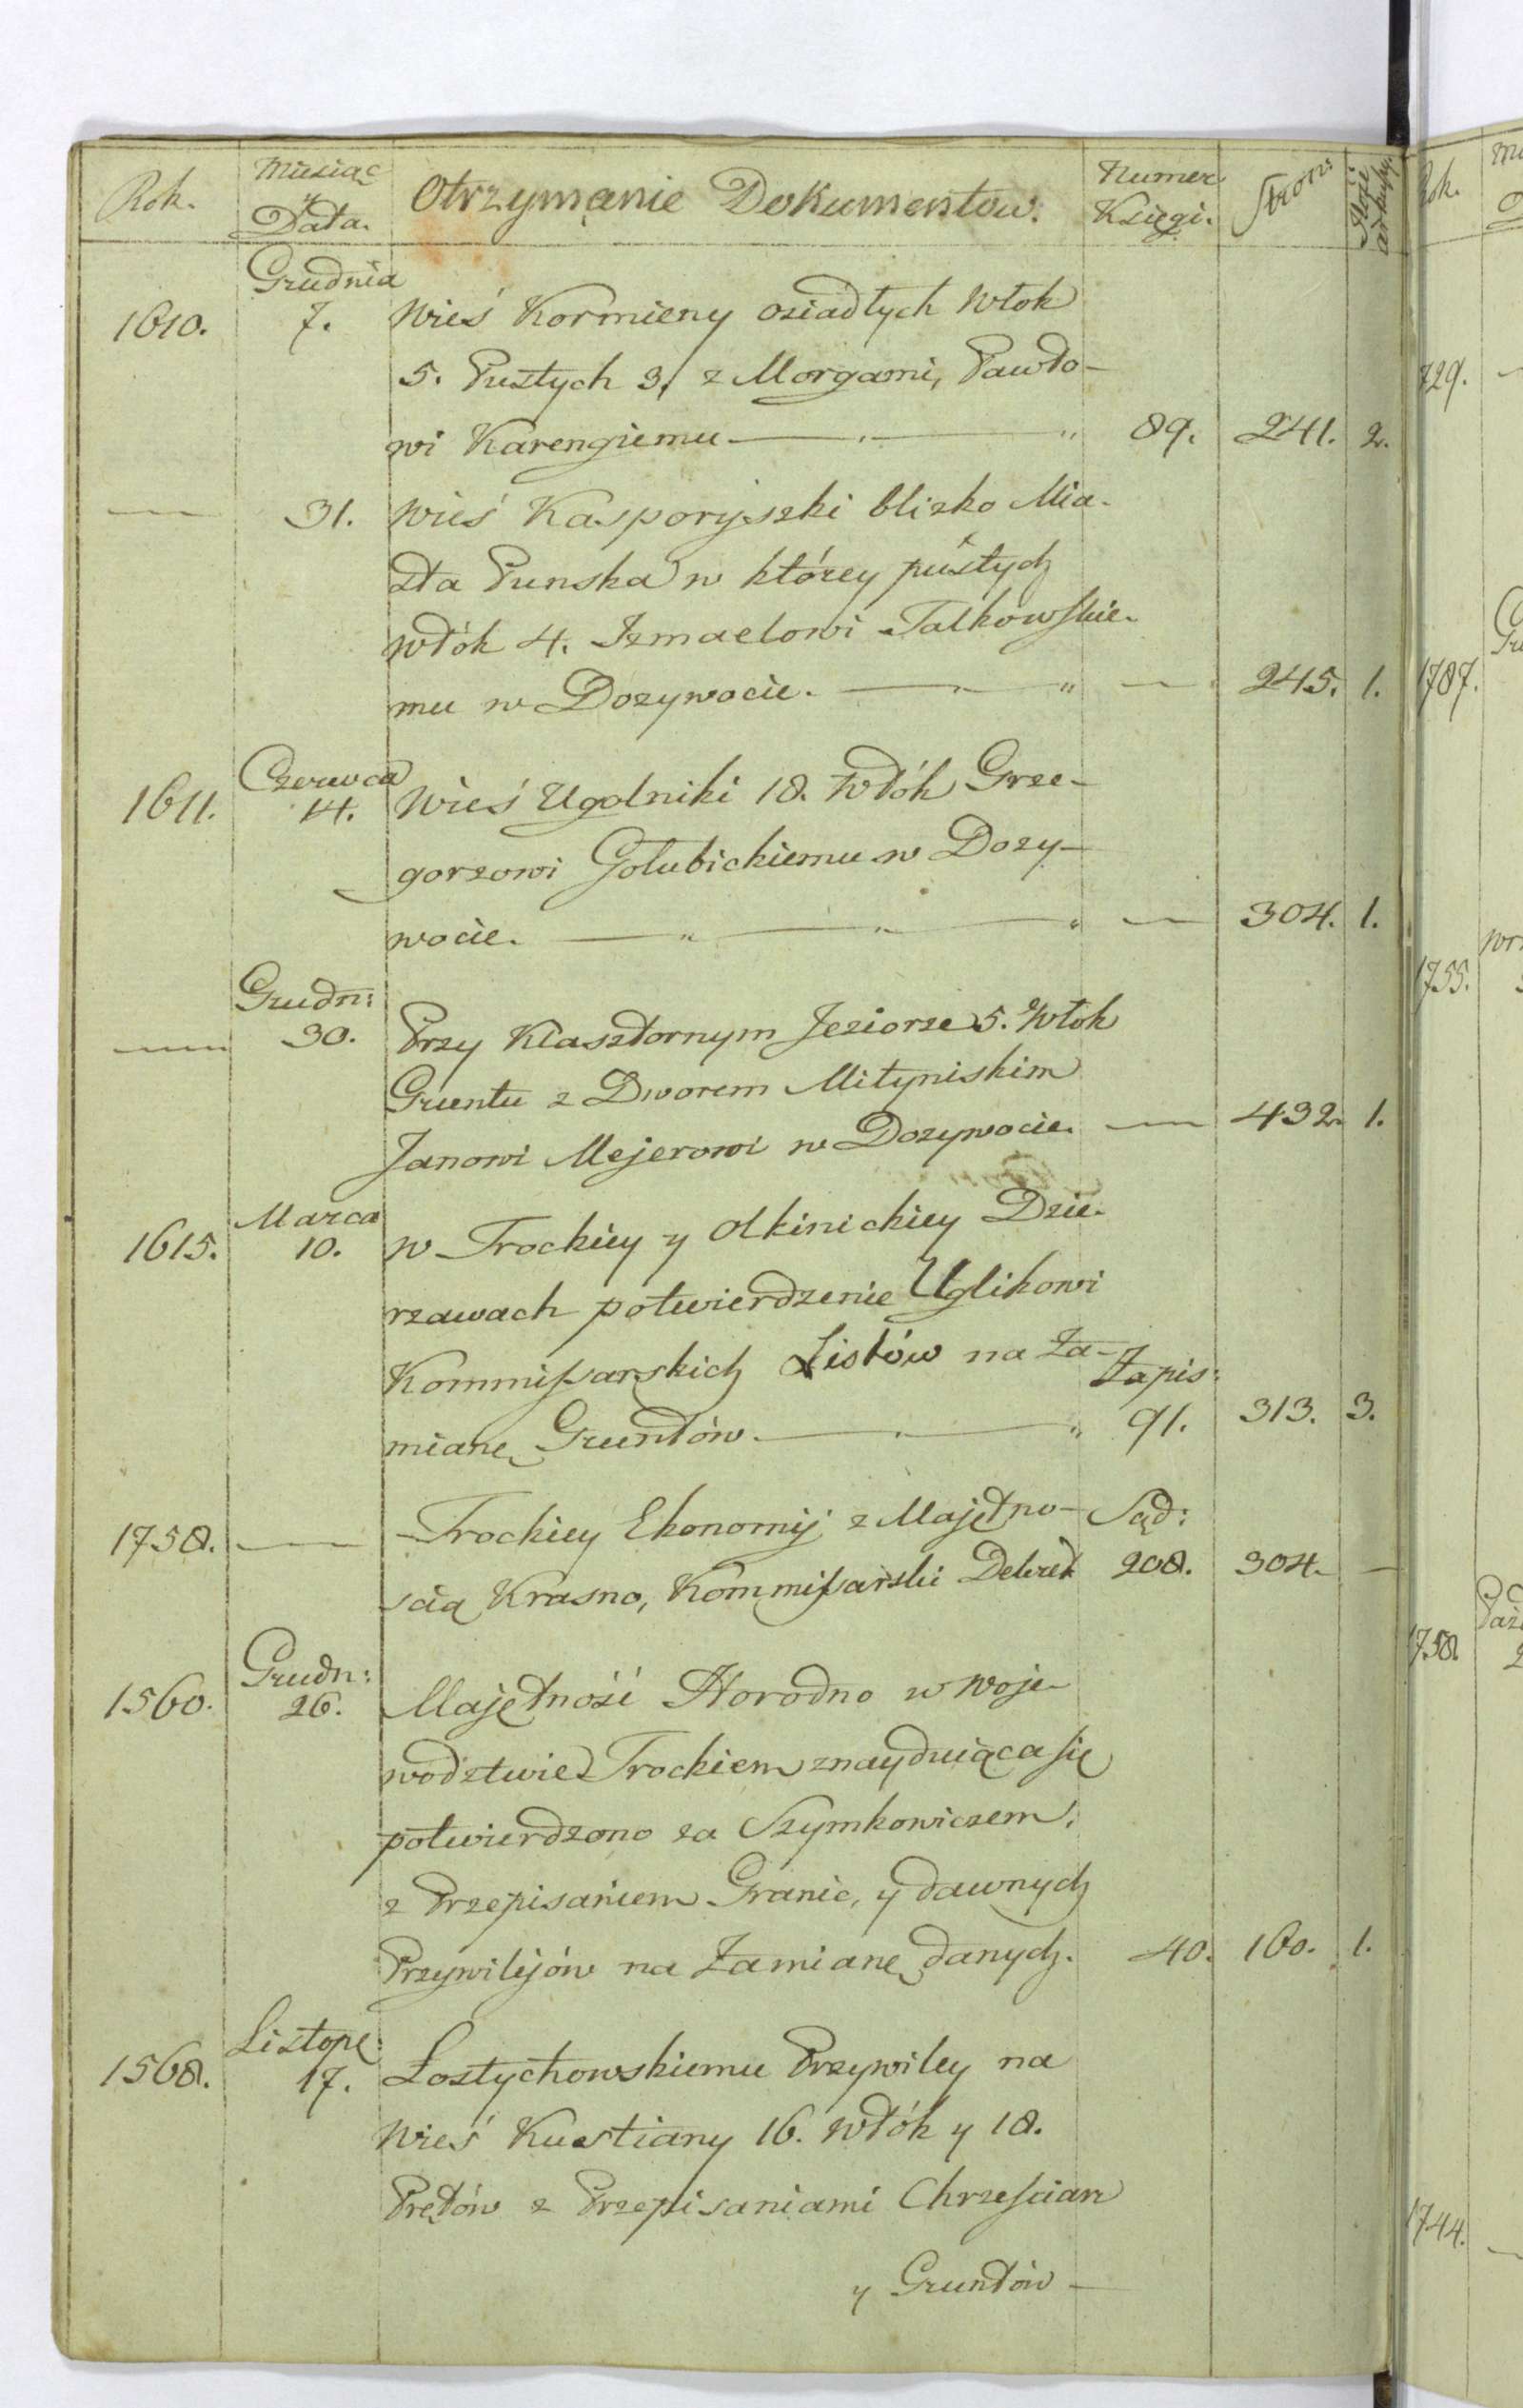 Rok. Miesiąc y Data. Otrzymanie Dokumentow. Numer Księgi. Stron: Ilość arkuszy.
Grudnia
1610. 7. Wieś Kormieny osiadłych Włok
5. Pustych 3, z Morgami, Pawło-
wi Karengiemu 89. 241. 2.
— 31. Wieś Kasporyszki blizko Mia-
sta Punska w którey pustych
włók 4. Izmaelowi Talkowskie-
mu w Dozywocie. — 245. 1.
Czerwca
1611. 14. Wieś Ugolniki 18. Włók Grze-
gorzowi Gołubickiemu w Dozy-
wocie. — 304. 1.
Grudn:
— 30. Przy Klasztornym Jeziorze 5. Włok
Gruntu z Dworem Mityniskim
Janowi Mejerowi w Dozywocie. — 432. 1.
Marca
1615. 10. w Trockiey y Olkinickiey Dzie-
rzawach potwierdzenie Uglikowi
Kommissarskich Listów na Za- Zapis:
mianę Gruntów. 91. 313. 3.
1758. — Trockiey Ekonomij z Majętno- Sąd:
scią Krasno, Kommisarski Dekret 208. 304. —
Grudn:
1560. 26. Majętność Horodno w Woje-
wodztwie Trockiem znayduiąca się
potwierdzono za Szymkowiczem,
z Przepisaniem Granic, y dawnych
Przywilejów na Zamianę danych. 40. 160. 1.
Listop:
1568. 17. Łostychowskiemu Przywiley na
Wieś Kustiany 16. Włók y 18.
Prętów z Przepisaniami Chrześcian
y Gruntów —
Rok.
729.
1787.
1755.
1758
1744.